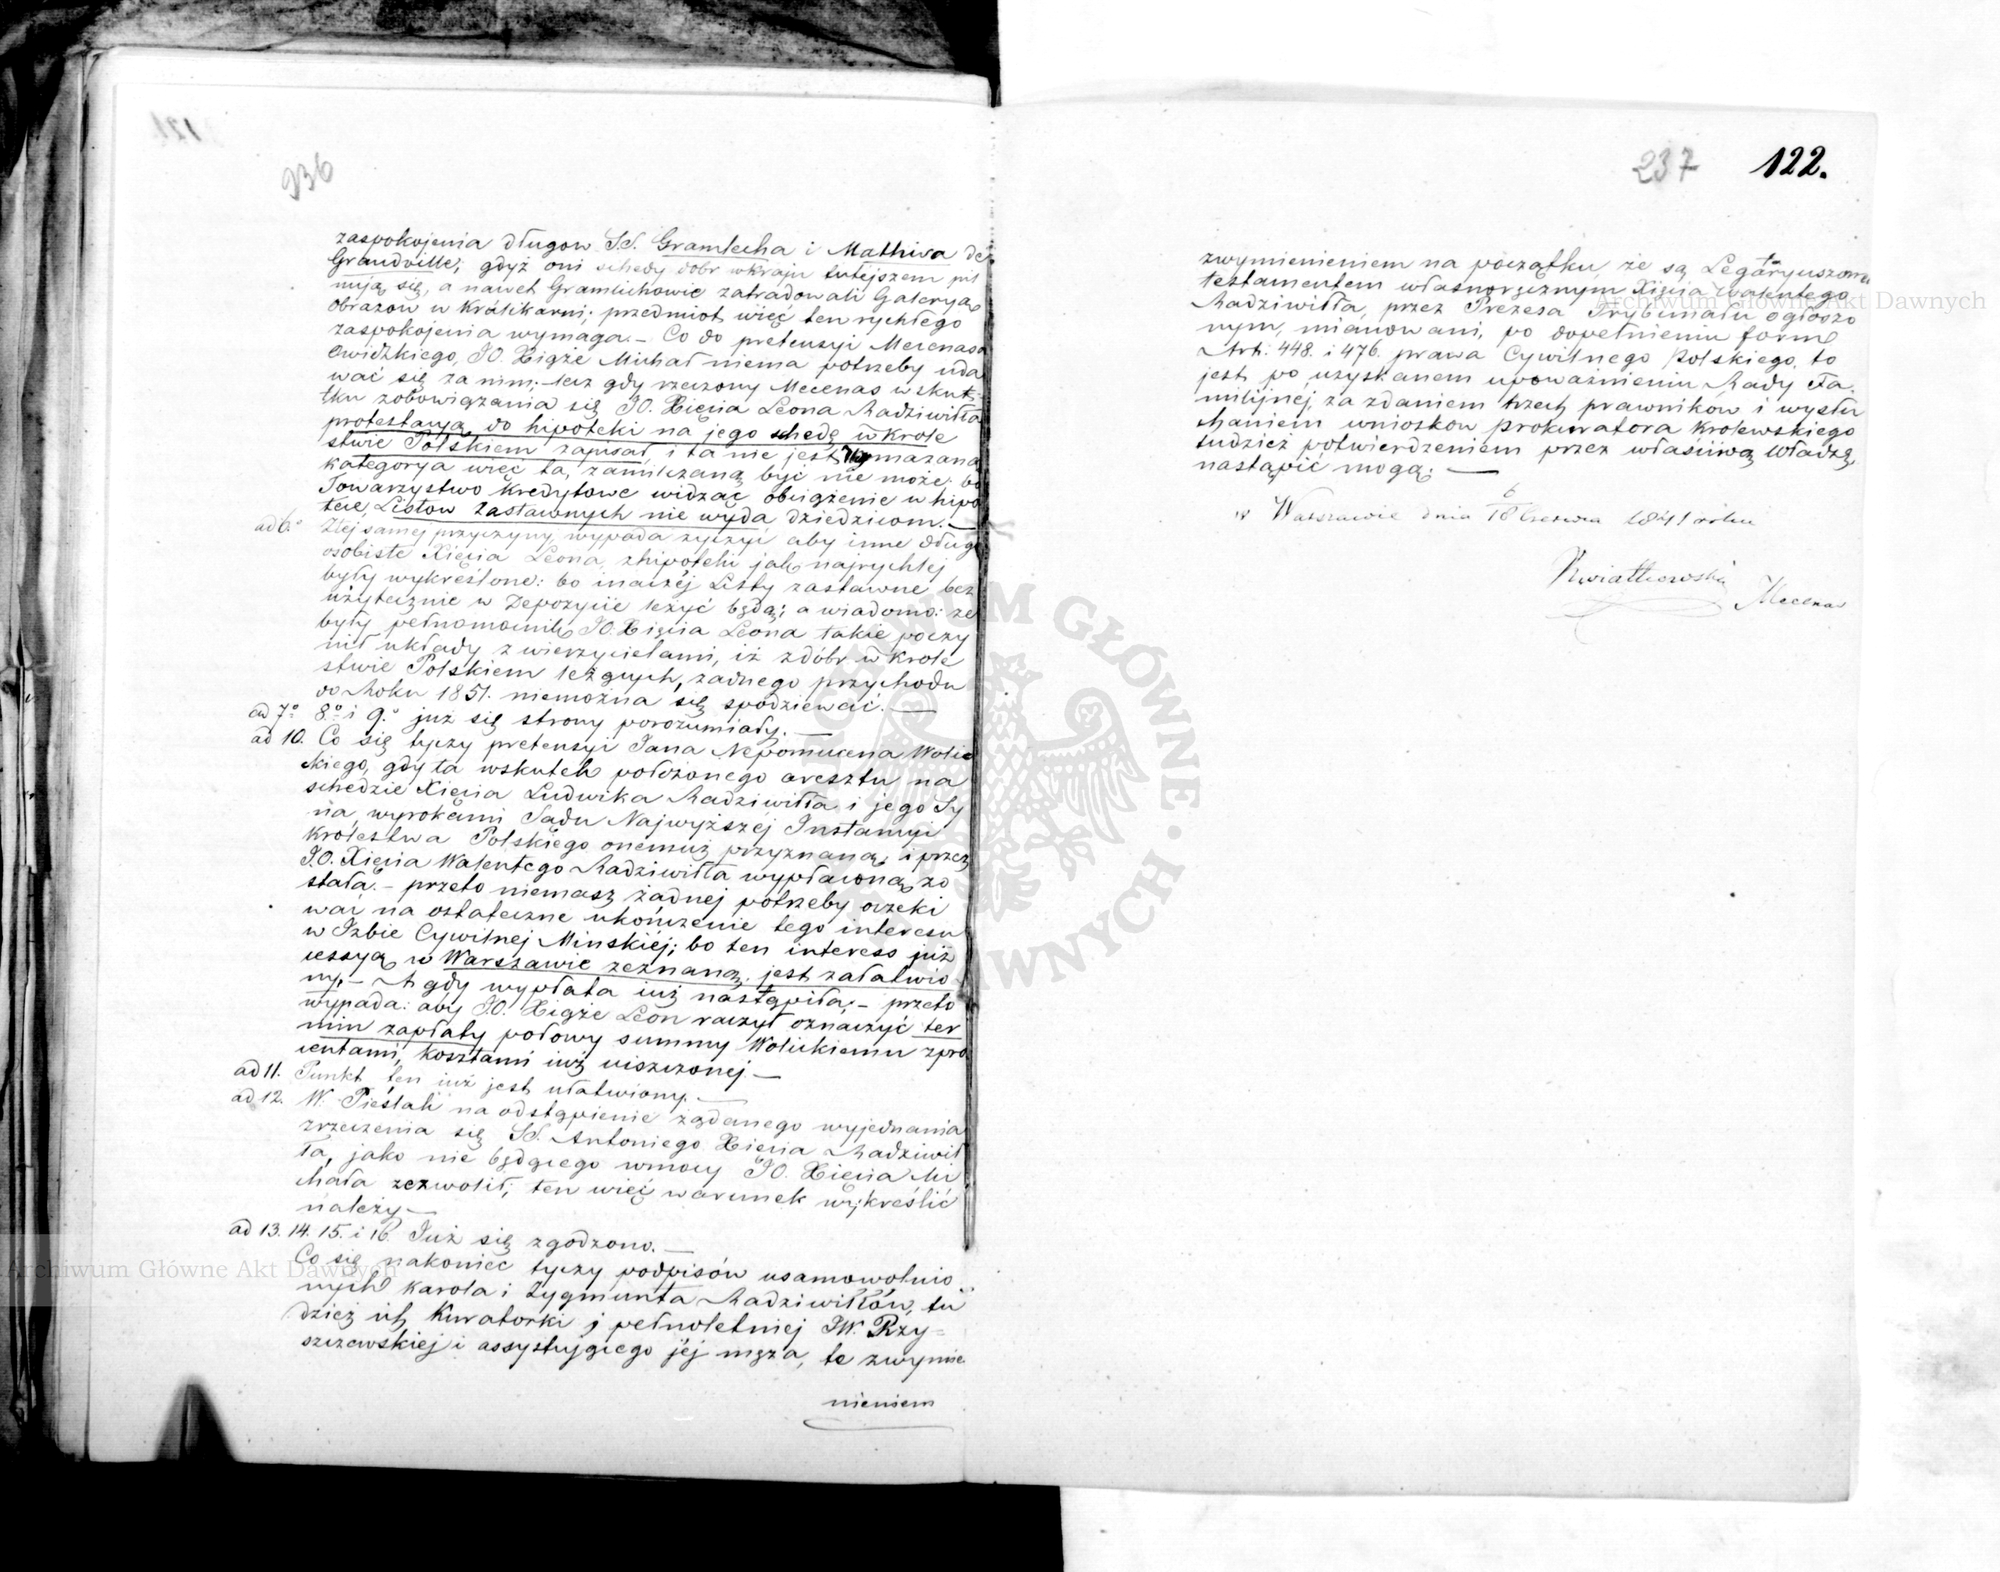 236
zaspokojenia długow SS. Gramlecha i Mathiva de
Grandville; gdyż oni schedy dobr w kraju tutejszem pil
nują się, a nawet Gramlichowie zatradowali Galeryą
obrazow w Królikarni; przedmiot więc ten rychłego
zaspokojenia wymaga. – Co do pretensyi Mecenasa
Owidzkiego, JO. Xiąże Michał niema potrzeby uda
wać się za nim; lecz gdy rzeczony Mecenas w skut
tku zobowiązania się JO. Xięcia Leona Radziwiłła
protestacyą do hipoteki na jego schedę w Krole
stwie Polskiem zapisał, i ta nie jest wymazaną
kategorya więc ta, zamilczaną być nie może; bo
Towarzystwo Kredytowe widząc obciążenie w hipo
tece, Listow Zastawnych nie wyda dziedzicom. —
ad 6.° Z tej samej przyczyny, wypada życzyć aby inne długi
osobiste Xięcia Leona, z hipoteki jak najrychlej
były wykreślone: bo inaczej Listy zastawne bez
użytecznie w Depozycie leżyć będą; a wiadomo: że
były pełnomocnik JO. Xięcia Leona takie poczy
nił układy z wierzycielami, iż z dóbr w Krole
stwie Polskiem leżących, żadnego przychodu
do Roku 1851. niemożna się spodziewać. —
ad 7° 8.° i 9.° już się strony porozumiały. —
ad 10. Co się tyczy pretensyi Jana Nepomucena Wolic
kiego, gdy ta wskutek położonego aresztu na
schedzie Xięcia Ludwika Radziwiłła i jego Sy
na, wyrokami Sądu Najwyższej Instancyi
Krolestwa Polskiego onemuż przyznaną, i przez
JO. Xięcia Walentego Radziwiłła wypłaconą zo
stała. – przeto niemasz żadnej potrzeby oczeki
wać na ostateczne ukończenie tego interesu
w Izbie Cywilnej Minskiéj; bo ten interess już
cessyą w Warszawie zeznaną, jest załatwio
ny. – A gdy wypłata już nastąpiła; – przeto
wypada: aby JO. Xiąże Leon raczył oznaczyć ter
min zapłaty połowy summy Wolickiemu z pro
centami, kosztami już uiszczonej. —
ad 11. Punkt ten już jest ułatwiony. —
ad 12. W. Pieślak na odstąpienie żądanego wyjednania
zrzeczenia się SS. Antoniego Xięcia Radziwił
ła, jako nie będącego w mocy JO. Xięcia Mi
chała zezwolił; ten więc warunek wykreślić
należy —
ad 13. 14. 15. i 16. Już się zgodzono. —
Co się nakoniec tyczy podpisów usamowolnio
nych Karola i Zygmunta Radziwiłłów, tu
dzież ich Kuratorki i pełnoletniej JW. Rzy=
szczewskiej i assystującego jéj męża, te z wymie
nieniem
237 122.
z wymienieniem na początku, że są Legataryuszami
testamentem własnoręcznym Xięcia Walentego
Radziwiłła, przez Prezesa Trybunału ogłoszo
nym, mianowani, po dopełnieniu form
Art: 448. i 476. prawa Cywilnego Polskiego, to
jest, po uzyskanem upoważnieniu Rady Fa
milijnej, za zdaniem trzech prawników i wysłu
chaniem wniosków prokuratora Krolewskiego
tudzież potwierdzeniem przez właściwą Władzę,
nastąpić mogą. —
w Warszawie dnia 6/18 Czerwca 1841 roku
Kwiatkowski
Mecenas
Archiwum Główne Akt Dawnych
Archiwum Główne Akt Dawnych